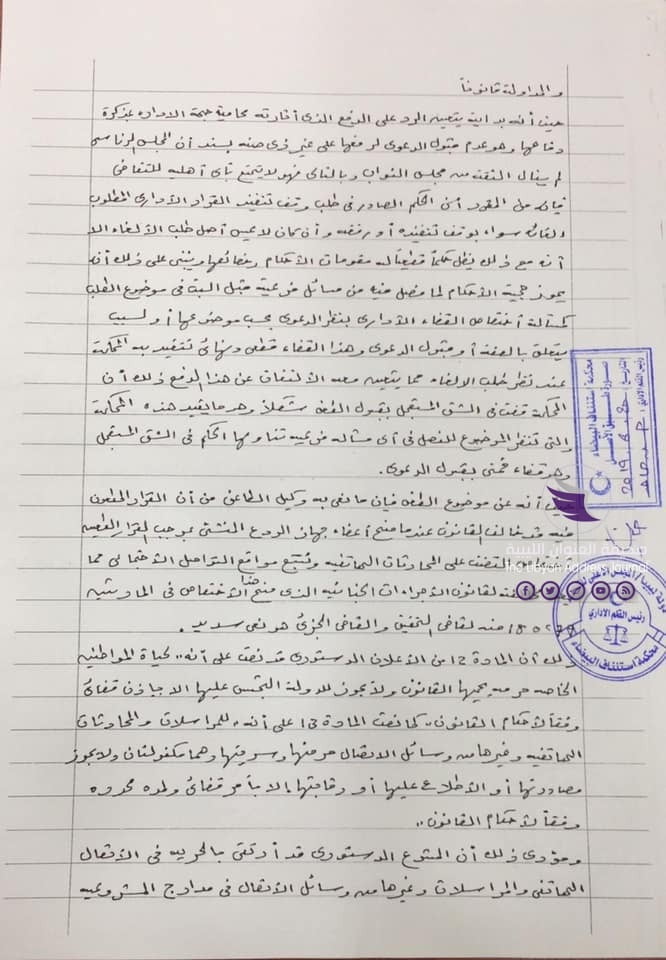 والمداولة قانوناً
حيث أنه بداية يتعين الرد على الدفع الذي أثارته محامية جهة الادارة بمذكرة
دفاعها وهو عدم قبول الدعوى لرفعها على غير ذي صفة بسند أن المجلس الرئاسي
لم ينال الثقة من مجلس النواب وبالتالي فهو لا يتمتع بأي أهلية للتقاضي
فإنه من المقرر أن الحكم الصادر في طلب وقف تنفيذ القرار الأداري المطلوب
الغائه سواء بوقف تنفيذه أو رفضه وأن كان لا يمس أصل طلب الألغاء الا
أنه مع ذلك يظل حكماً قطعياً له مقومات الأحكام وخصائصها وينبني على ذلك أنه
يحوز حجية الأحكام لما فصل فيه من مسائل فرعية قبل البت في موضوع الطلب
كمسألة أختصاص القضاء الأداري بنظر الدعوى بحسب موضوعها أو لسبب
يتعلق بالصفة أو قبول الدعوى وهذا القضاء قطعي ونهائي تتقيد به المحكمة
عند نظر طلب الالغاء مما يتعين معه الألتفات عن هذا الدفع ذلك أن
المحكمة قضت في الشق المستعجل بقبول الطعن شكلاً وهو ما يقيد هذه المحكمة
والتي تنظر الموضوع للفصل في أي مسألة فرعية تناولها الحكم في الشق المستعجل
وهو قضاء ضمني بقبول الدعوى.
وحيث أنه عن موضوع الطعن فإن ما نعى به وكيل الطاعن من أن القرار المطعون
فيه قد خالف القانون عندما منح أعضاء جهاز الردع النشئ بموجب القرار الطعين
التنصت على المحادثات الهاتفية وتتبع مواقع التواصل الأجتماعي مما
لقانون الأجراءات الجنائية الذي منح هذا الأختصاص في المادتين
79، 180 منه لقاضي التحقيق والقاضي الجزئ هو نعي سديد.
وذلك أن المادة 12 من الأعلان الدستوري قد نصت على أنه،، لحياة المواطنين
الخاصة حرمه يحميها القانون ولا يجوز للدولة التجسس عليها الا بإذن قضائي
وفقاً لأحكام القانون،، كما نصت المادة 13 على أنه،، للمراسلات والمحادثات
الهاتفية وغيرها من وسائل الاتصال حرمتها وسريتها وهما مكفولتان ولا يجوز
مصادرتها أو الأطلاع عليها أو رقابتها إلا بأمر قضائي ولمده محدوده
وفقاً لأحكام القانون،،
ومؤدى ذلك أن المشرع الدستوري قد أرتقى بالحريه في الأتصال
الهاتفي والمراسلات وغيرها من وسائل الأتصال في مدارج المشروعيه
محكمة استئناف البيضاء
صورة طبق الأصل
التاريخ:
2019
رئيس القلم الاداري
محكمة استئناف البيضاء
صحيفة العنوان الليبية
The Libyan Address Journal